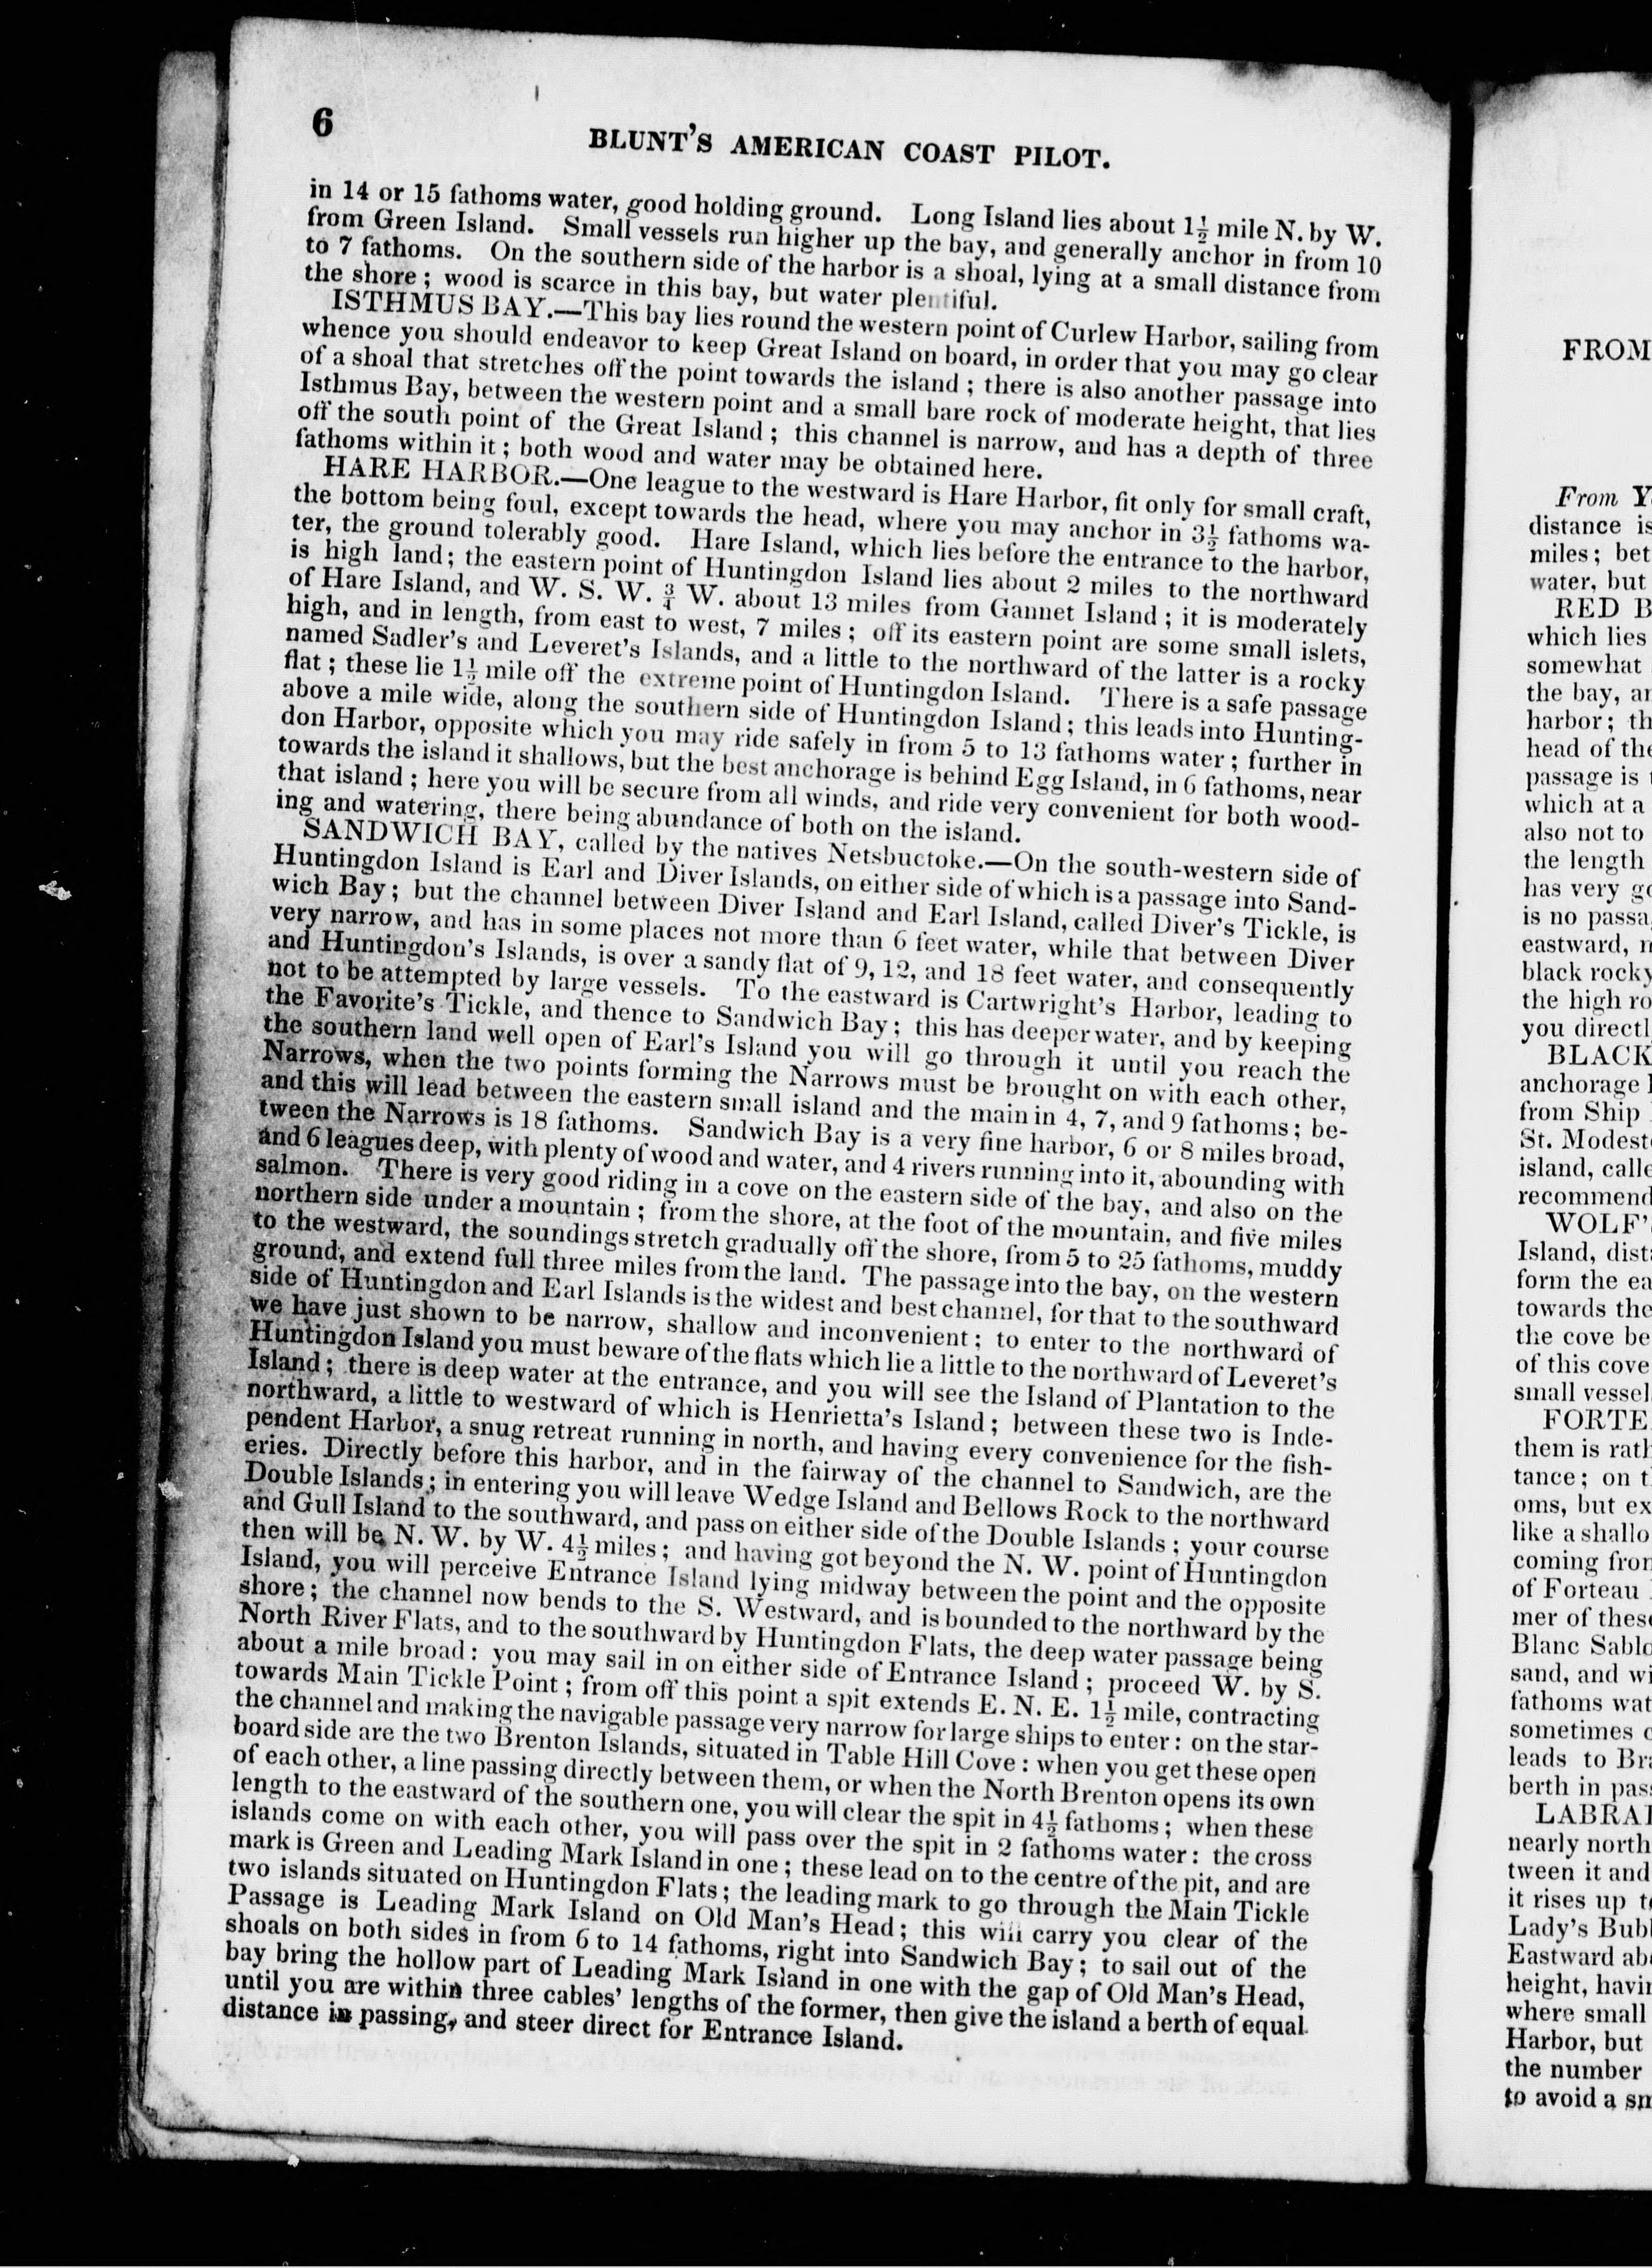 6
BLUNT'S AMERICAN COAST PILOT.
in 14 or 15 fathoms water, good holding ground. Long Island lies about 1½ mile N. by W.
from Green Island. Small vessels run higher up the bay, and generally anchor in from 10
to 7 fathoms. On the southern side of the harbor is a shoal, lying at a small distance from
the shore; wood is scarce in this bay, but water plentiful.
ISTHMUS BAY.—This bay lies round the western point of Curlew Harbor, sailing from
whence you should endeavor to keep Great Island on board, in order that you may go clear
of a shoal that stretches off the point towards the island; there is also another passage into
Isthmus Bay, between the western point and a small bare rock of moderate height, that lies
off the south point of the Great Island; this channel is narrow, and has a depth of three
fathoms within it; both wood and water may be obtained here.
HARE HARBOR.—One league to the westward is Hare Harbor, fit only for small craft,
the bottom being foul, except towards the head, where you may anchor in 3½ fathoms wa-
ter, the ground tolerably good. Hare Island, which lies before the entrance to the harbor,
is high land; the eastern point of Huntingdon Island lies about 2 miles to the northward
of Hare Island, and W. S. W. ¾ W. about 13 miles from Gannet Island; it is moderately
high, and in length, from east to west, 7 miles; off its eastern point are some small islets,
named Sadler's and Leveret's Islands, and a little to the northward of the latter is a rocky
flat; these lie 1½ mile off the extreme point of Huntingdon Island. There is a safe passage
above a mile wide, along the southern side of Huntingdon Island; this leads into Hunting-
don Harbor, opposite which you may ride safely in from 5 to 13 fathoms water; further in
towards the island it shallows, but the best anchorage is behind Egg Island, in 6 fathoms, near
that island; here you will be secure from all winds, and ride very convenient for both wood-
ing and watering, there being abundance of both on the island.
SANDWICH BAY, called by the natives Netsbuctoke.—On the south-western side of
Huntingdon Island is Earl and Diver Islands, on either side of which is a passage into Sand-
wich Bay; but the channel between Diver Island and Earl Island, called Diver's Tickle, is
very narrow, and has in some places not more than 6 feet water, while that between Diver
and Huntingdon's Islands, is over a sandy flat of 9, 12, and 18 feet water, and consequently
not to be attempted by large vessels. To the eastward is Cartwright's Harbor, leading to
the Favorite's Tickle, and thence to Sandwich Bay; this has deeper water, and by keeping
the southern land well open of Earl's Island you will go through it until you reach the
Narrows, when the two points forming the Narrows must be brought on with each other,
and this will lead between the eastern small island and the main in 4, 7, and 9 fathoms; be-
tween the Narrows is 18 fathoms. Sandwich Bay is a very fine harbor, 6 or 8 miles broad,
and 6 leagues deep, with plenty of wood and water, and 4 rivers running into it, abounding with
salmon. There is very good riding in a cove on the eastern side of the bay, and also on the
northern side under a mountain; from the shore, at the foot of the mountain, and five miles
to the westward, the soundings stretch gradually off the shore, from 5 to 25 fathoms, muddy
ground, and extend full three miles from the land. The passage into the bay, on the western
side of Huntingdon and Earl Islands is the widest and best channel, for that to the southward
we have just shown to be narrow, shallow and inconvenient; to enter to the northward of
Huntingdon Island you must beware of the flats which lie a little to the northward of Leveret's
Island; there is deep water at the entrance, and you will see the Island of Plantation to the
northward, a little to westward of which is Henrietta's Island; between these two is Inde-
pendent Harbor, a snug retreat running in north, and having every convenience for the fish-
eries. Directly before this harbor, and in the fairway of the channel to Sandwich, are the
Double Islands; in entering you will leave Wedge Island and Bellows Rock to the northward
and Gull Island to the southward, and pass on either side of the Double Islands; your course
then will be N. W. by W. 4½ miles; and having got beyond the N. W. point of Huntingdon
Island, you will perceive Entrance Island lying midway between the point and the opposite
shore; the channel now bends to the S. Westward, and is bounded to the northward by the
North River Flats, and to the southward by Huntingdon Flats, the deep water passage being
about a mile broad: you may sail in on either side of Entrance Island; proceed W. by S.
towards Main Tickle Point; from off this point a spit extends E. N. E. 1½ mile, contracting
the channel and making the navigable passage very narrow for large ships to enter: on the star-
board side are the two Brenton Islands, situated in Table Hill Cove: when you get these open
of each other, a line passing directly between them, or when the North Brenton opens its own
length to the eastward of the southern one, you will clear the spit in 4½ fathoms; when these
islands come on with each other, you will pass over the spit in 2 fathoms water: the cross
mark is Green and Leading Mark Island in one; these lead on to the centre of the pit, and are
two islands situated on Huntingdon Flats; the leading mark to go through the Main Tickle
Passage is Leading Mark Island on Old Man's Head; this will carry you clear of the
shoals on both sides in from 6 to 14 fathoms, right into Sandwich Bay; to sail out of the
bay bring the hollow part of Leading Mark Island in one with the gap of Old Man's Head,
until you are within three cables' lengths of the former, then give the island a berth of equal
distance in passing, and steer direct for Entrance Island.
FROM
From
distance is
miles; bet
water, but
RED B
which lies
somewhat
the bay, an
harbor; th
head of the
passage is
which at a
also not to
the length
has very go
is no passa
eastward, n
black rocky
the high ro
you directl
BLACK
anchorage
from Ship
St. Modest
island, calle
recommend
WOLF'
Island, dist
form the ea
towards the
the cove be
of this cove
small vessel
FORTE
them is rath
tance; on t
oms, but ex
like a shallo
coming from
of Forteau
mer of these
Blanc Sablo
sand, and wi
fathoms wat
sometimes
leads to Bra
berth in pas
LABRA
nearly north
tween it and
it rises up t
Lady's Bub
Eastward ab
height, havin
where small
Harbor, but
the number
to avoid a sm